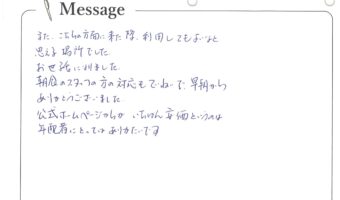 Message
また、こちらの方面に来た際、利用してもよいなと
思える場所でした
お世話になりました
朝食のスタッフの方の対応もていねいで、早朝から
ありがとうございました
公式ホームページからが いちばん安価というのは
年配者にとってはありがたいです